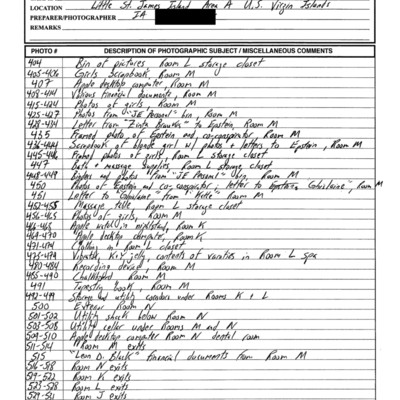 LOCATION Little St. James Island Area A U.S. Virgin Islands
PREPARER/PHOTOGRAPHER IA
REMARKS
PHOTO # DESCRIPTION OF PHOTOGRAPHIC SUBJECT / MISCELLANEOUS COMMENTS
404 Bin of pictures, Room L storage closet
405-406 Girls Scrapbook, Room M
407 Apple desktop computer, Room M
408-414 Various financial documents, Room M
415-424 Photos of girls, Room M
425-427 Photos from "JE Personal" bin, Room M
428-434 Letter from to Epstein, Room M
435 Framed photo of Epstein and co-conspirator, Room M
436-444 Scrapbook of blonde girl w/ photos + letters to Epstein, Room M
445-446 Framed photos of girls, Room L storage closet
447 Bath + massage supplies Room L storage closet
448-449 Photos from "JE Personal" bin, Room M
450 Photos of Epstein and co-conspirator; letter to Epstein Room M
451 Letter to from Room M
452-455 Massage table, Room L storage closet
456-465 Photos of girls, Room M
466-468 Apple watch in nightstand, Room K
469-470 Apple desktop computer, Room K
471-474 Clothing in Room L closet
475-479 Vibrator, K-Y jelly, contents of vanities in Room L spa
480-484 Recording device, Room M
485-490 Chalkboard Room M
491 Tapestry book, Room M
492-499 Storage and utility corridors under Rooms K + L
500 Exterior Room N
501-502 Utility shack below Room N
503-508 Utility cellar under Rooms M and N
509-510 Apple desktop computer Room N dental room
511-514 Room M exits
515 "Leon D. Black" financial documents from Room M
516-518 Room N exits
519-522 Room K exits
523-528 Room L exits
529-541 Room J exits